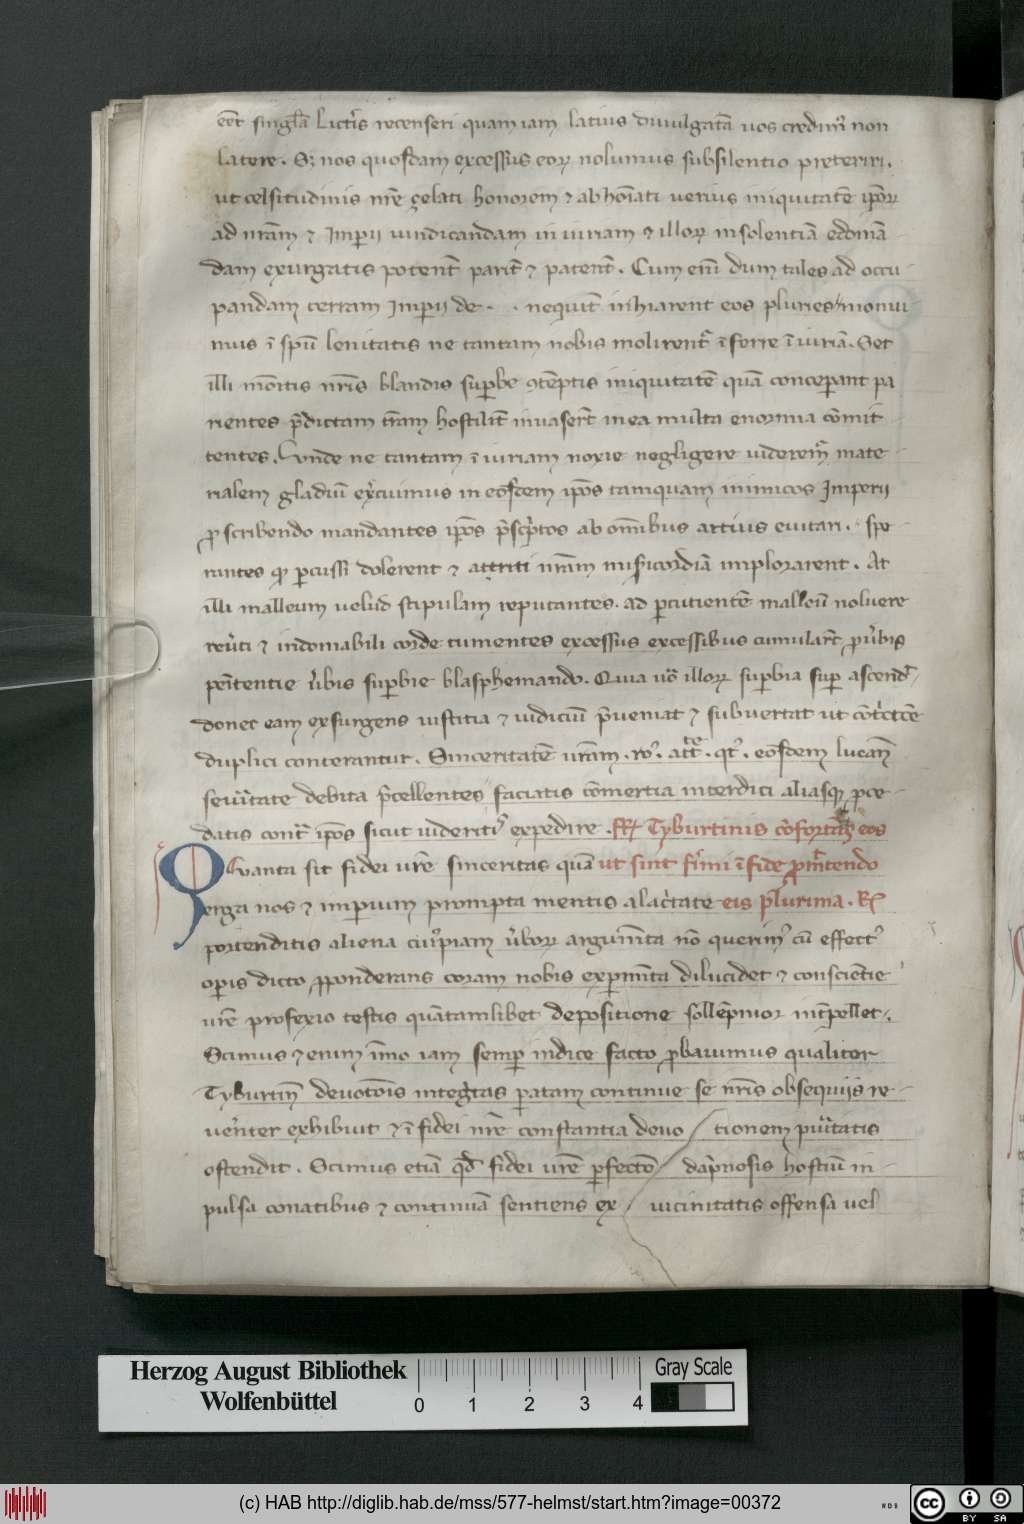 eēt singl̄a Lictr̄is recenseri quam iam latius diuulgatā uos credim᷒ non
latere. Sꝫ nos quosdam excessus eoꝝ nolumus subsilentio preteriri.
ut celsitudinis nr̄e zelati honorem ⁊ ab hoīati uerius iniquitatē ip̄oꝝ
ad nr̄am ⁊ Imperii uindicandam iniuriam ⁊ illoꝝ insolentiā edomā
dam exurgatis potent̄ parit̄ ⁊ patent̄. Cum enī dum tales ad occu
pandam terram Imperii de . . nequit̄ inhiarent eos pluries monui
mus ī spū lenitatis ne tantam nobis molirent᷒ īferre īiuriā. Set
illi mōitis nr̄is blandis suꝑbe ꝯtēptis iniquitatē quā conceꝑant pa
rientes p̄dictam tr̄am hostilit̄ inuaser̄t in ea multa enormia cōmit
tentes. Vnde ne tantam īiuriam noxie negligere uiderem᷒ mate
rialem gladiū ex̓cuimus in eosdem ip̄os tamquam inimicos Imperii
ꝓscribendo mandantes ip̄os p̄sc̓ptos ab om̄ibus artius euitari. spe
rantes qꝫ ꝑcussi dolerent ⁊ attriti nr̄am misicordiā implorarent. At
illi malleum uelud stipulam reputantes. ad ꝑcutientē malleū noluere
reu̓ti ⁊ indomabili corde tumentes excessus excessibus cumular̄t ꝓu̓bis
penitentie u̓bis suꝑbie blasphemando. Quia u̓o illoꝝ suꝑbia suꝑ ascend̄
donec eam exsurgens iustitia ⁊ iudiciū p̄ueniat ⁊ subuertat ut cōt̓ctōe
duplici conterantur. Sinceritatē ur̄am . ro᷒. att̄e . qt᷒. eosdem lucan̄
seu̓itate debita p̄cellentes faciatis cōmertia interdici aliasqꝫ ꝓce
datis cont̄ ip̄os sicut uideritis expedire. Rͫ Tyburtinis cōfortās eos
Quanta sit fidei ur̄e sinceritas quā ut sint firmi ī fide ꝓmittendo
erga nos ⁊ imperium prompta mentis alac̓tate eis plurima. Rͫ
portenditis aliena cuiuspiam u̓boꝝ argumta nō querim᷒ cū effect᷒
oꝑis dicto p̄ponderans coram nobis exꝑimta dilucidet ⁊ consciētie
ur̄e professio testis quātamlibet depositione sollēpnior int̄pellet.
Scimus ⁊enim īmo iam semꝑ indice facto ꝓbauimus qualiter
Tyburtin̄ deuotōis integ̓tas ꝑatam continue se nr̄is obsequiis re
uen̓ter exhibuit ⁊ ī fidei nr̄e constantia deuo tionem puritatis
ostendit. Scimus etiā qd̄ fidei ur̄e ꝑfectō dapnosis hostiū in
pulsa conatibus ⁊ continuā sentiens ex uicinitatis offensa uel
Herzog August Bibliothek
Wolfenbüttel
0 1 2 3 4
Gray Scale
(c) HAB http://diglib.hab.de/mss/577-helmst/start.htm?image=00372
WDB
cc BY SA